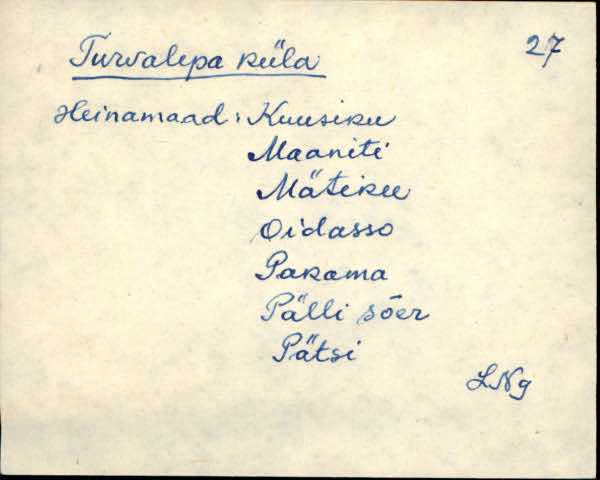 Turvalepa küla 27
Heinamaad: Kuusiku
Maaniti
Mätiku
Oidasso
Pakama
Pälli sõer
Pätsi
LNg